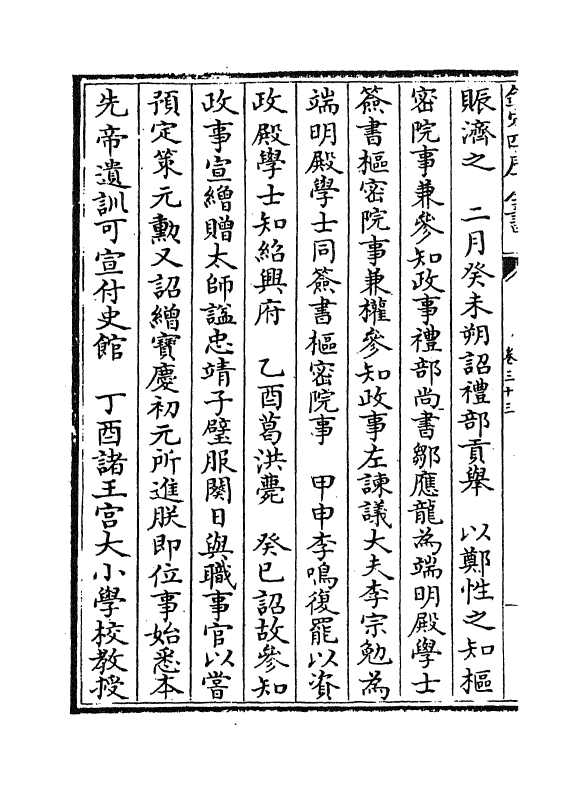 賑濟之　二月癸未朔詔禮部貢舉　以鄭性之知樞
密院事兼參知政事禮部尚書鄒應龍為端明殿學士
簽書樞密院事兼權參知政事左諫議大夫李宗勉為
端明殿學士同簽書樞密院事　甲申李鳴復罷以資
政殿學士知紹興府　乙酉葛洪薨　癸巳詔故參知
政事宣繒贈太師諡忠靖子璧服闋日與職事官以嘗
預定策元勳又詔繒寶慶初元所進朕即位事始悉本
先帝遺訓可宣付史館　丁酉諸王宮大小學校教授
卷三十三